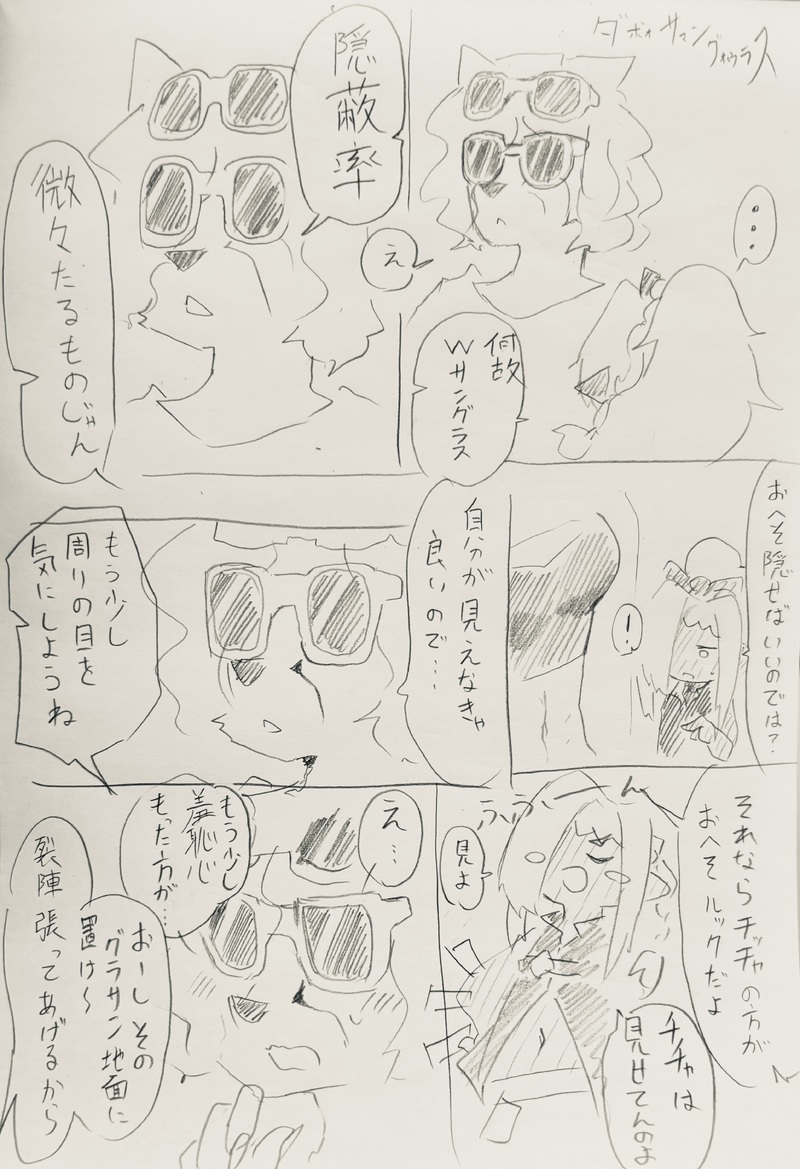 ダボォサマングォゥラス
…
え
何故
Wサングラス
隠蔽率
微々たるものじゃん
おへそ隠せばいいのでは?
!
自分が見えなきゃ
良いので…
もう少し
周りの目を
気にしようね
それならチッチャの方が
おへそルックだよ
ふふーん
見よ
チチャは
見せてんのよ
え…
もう少し
羞恥心
もった方が…
おーしその
グラサン地面に
置け〜
裂陣張ってあげるから